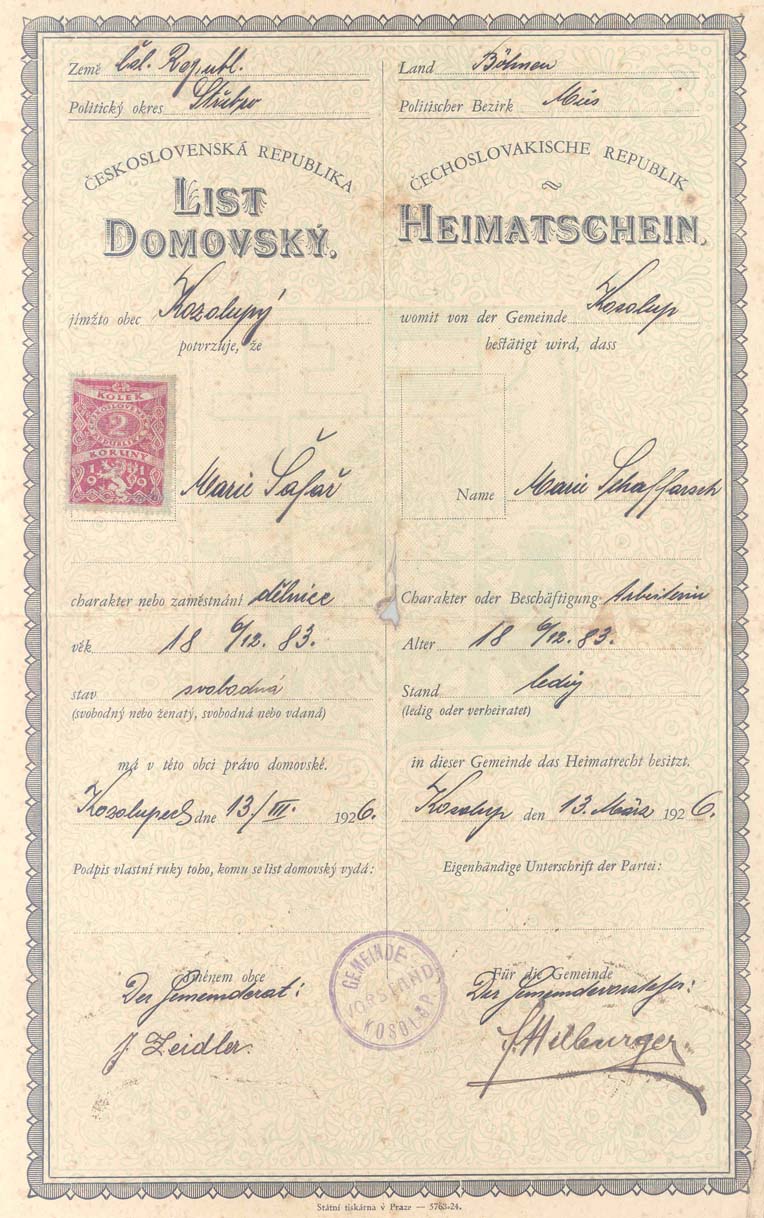 Země Čsl. Republ.
Politický okres Stříbro
ČESKOSLOVENSKÁ REPUBLIKA
LIST
DOMOVSKÝ.
jímžto obec Kozolupý
potvrzuje, že
KOLEK
ČESKOSLOVENSKÁ
2
REPUBLIKA
KORUNY
1919
Marie Šafař
charakter nebo zaměstnání dělnice
věk 18 6/12. 83.
stav svobodná
(svobodný nebo ženatý, svobodná nebo vdaná)
má v této obci právo domovské.
Kozolupech dne 13./III. 1926.
Podpis vlastní ruky toho, komu se list domovský vydá:
Jménem obce
Der Gemeinderat:
J. Zeidler.
Land Böhmen
Politischer Bezirk Mies
ČECHOSLOVAKISCHE REPUBLIK
HEIMATSCHEIN.
womit von der Gemeinde Kosolup
bestätigt wird, dass
Name Marie Schaffarsch
Charakter oder Beschäftigung Arbeiterin
Alter 18 6/12. 83.
Stand ledig
(ledig oder verheiratet)
in dieser Gemeinde das Heimatrecht besitzt.
Kosolup den 13. März 1926.
Eigenhändige Unterschrift der Partei:
Für die Gemeinde
Der Gemeindevorsteher:
GEMEINDE-
VORSTAND
KOSOLUP
Státní tiskárna v Praze — 5763-24.